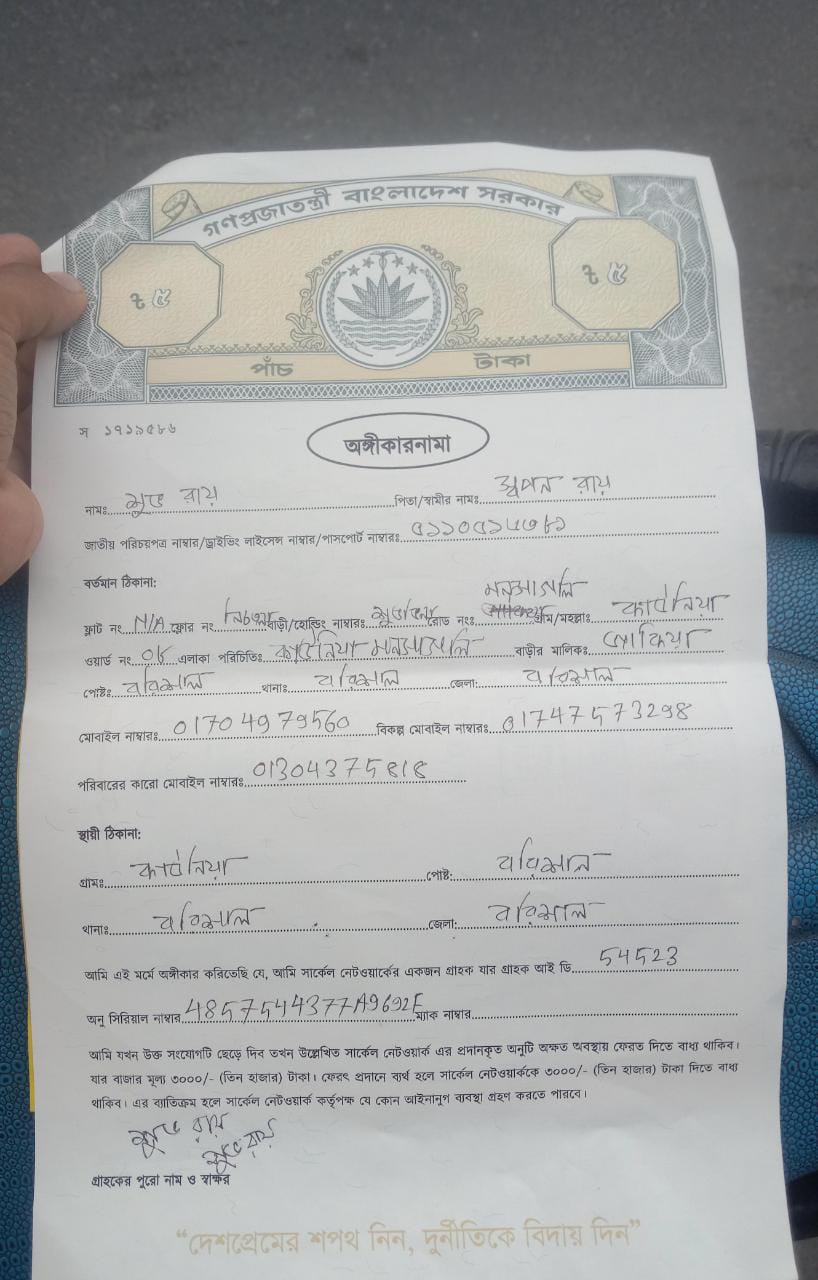 গণপ্রজাতন্ত্রী বাংলাদেশ সরকার
৳ ৫ ৳ ৫
পাঁচ টাকা
স ১৭১৯৫৮৬
অঙ্গীকারনামা
নামঃ শুভ রায় পিতা/স্বামীর নামঃ স্বপন রায়
জাতীয় পরিচয়পত্র নাম্বার/ড্রাইভিং লাইসেন্স নাম্বার/পাসপোর্ট নাম্বারঃ
বর্তমান ঠিকানা:
ফ্লাট নং N/A ফ্লোর নং নিচতলা বাড়ী/হোল্ডিং নাম্বারঃ রোড নংঃ গ্রাম/মহল্লাঃ কাউনিয়া
ওয়ার্ড নং 0৮ এলাকা পরিচিতিঃ কাউনিয়া মনসাগলি বাড়ীর মালিকঃ জাকিয়া
পোষ্টঃ বরিশাল থানাঃ বরিশাল জেলা: বরিশাল
মোবাইল নাম্বারঃ 01704979560 বিকল্প মোবাইল নাম্বারঃ 01747573298
পরিবারের কারো মোবাইল নাম্বারঃ 01304375818
স্থায়ী ঠিকানা:
গ্রামঃ কাউনিয়া পোষ্ট: বরিশাল
থানাঃ বরিশাল জেলা: বরিশাল
আমি এই মর্মে অঙ্গীকার করিতেছি যে, আমি সার্কেল নেটওয়ার্কের একজন গ্রাহক যার গ্রাহক আই ডি 54523
অনু সিরিয়াল নাম্বার 4857544377A9692F ম্যাক নাম্বার
আমি যখন উক্ত সংযোগটি ছেড়ে দিব তখন উল্লেখিত সার্কেল নেটওয়ার্ক এর প্রদানকৃত অনুটি অক্ষত অবস্থায় ফেরত দিতে বাধ্য থাকিব।
যার বাজার মূল্য ৩০০০/- (তিন হাজার) টাকা। ফেরৎ প্রদানে ব্যর্থ হলে সার্কেল নেটওয়ার্ককে ৩০০০/- (তিন হাজার) টাকা দিতে বাধ্য
থাকিব। এর ব্যতিক্রম হলে সার্কেল নেটওয়ার্ক কর্তৃপক্ষ যে কোন আইনানুগ ব্যবস্থা গ্রহণ করতে পারবে।
শুভ রায়
শুভ রায়
গ্রাহকের পুরো নাম ও স্বাক্ষর
“দেশপ্রেমের শপথ নিন, দুর্নীতিকে বিদায় দিন”